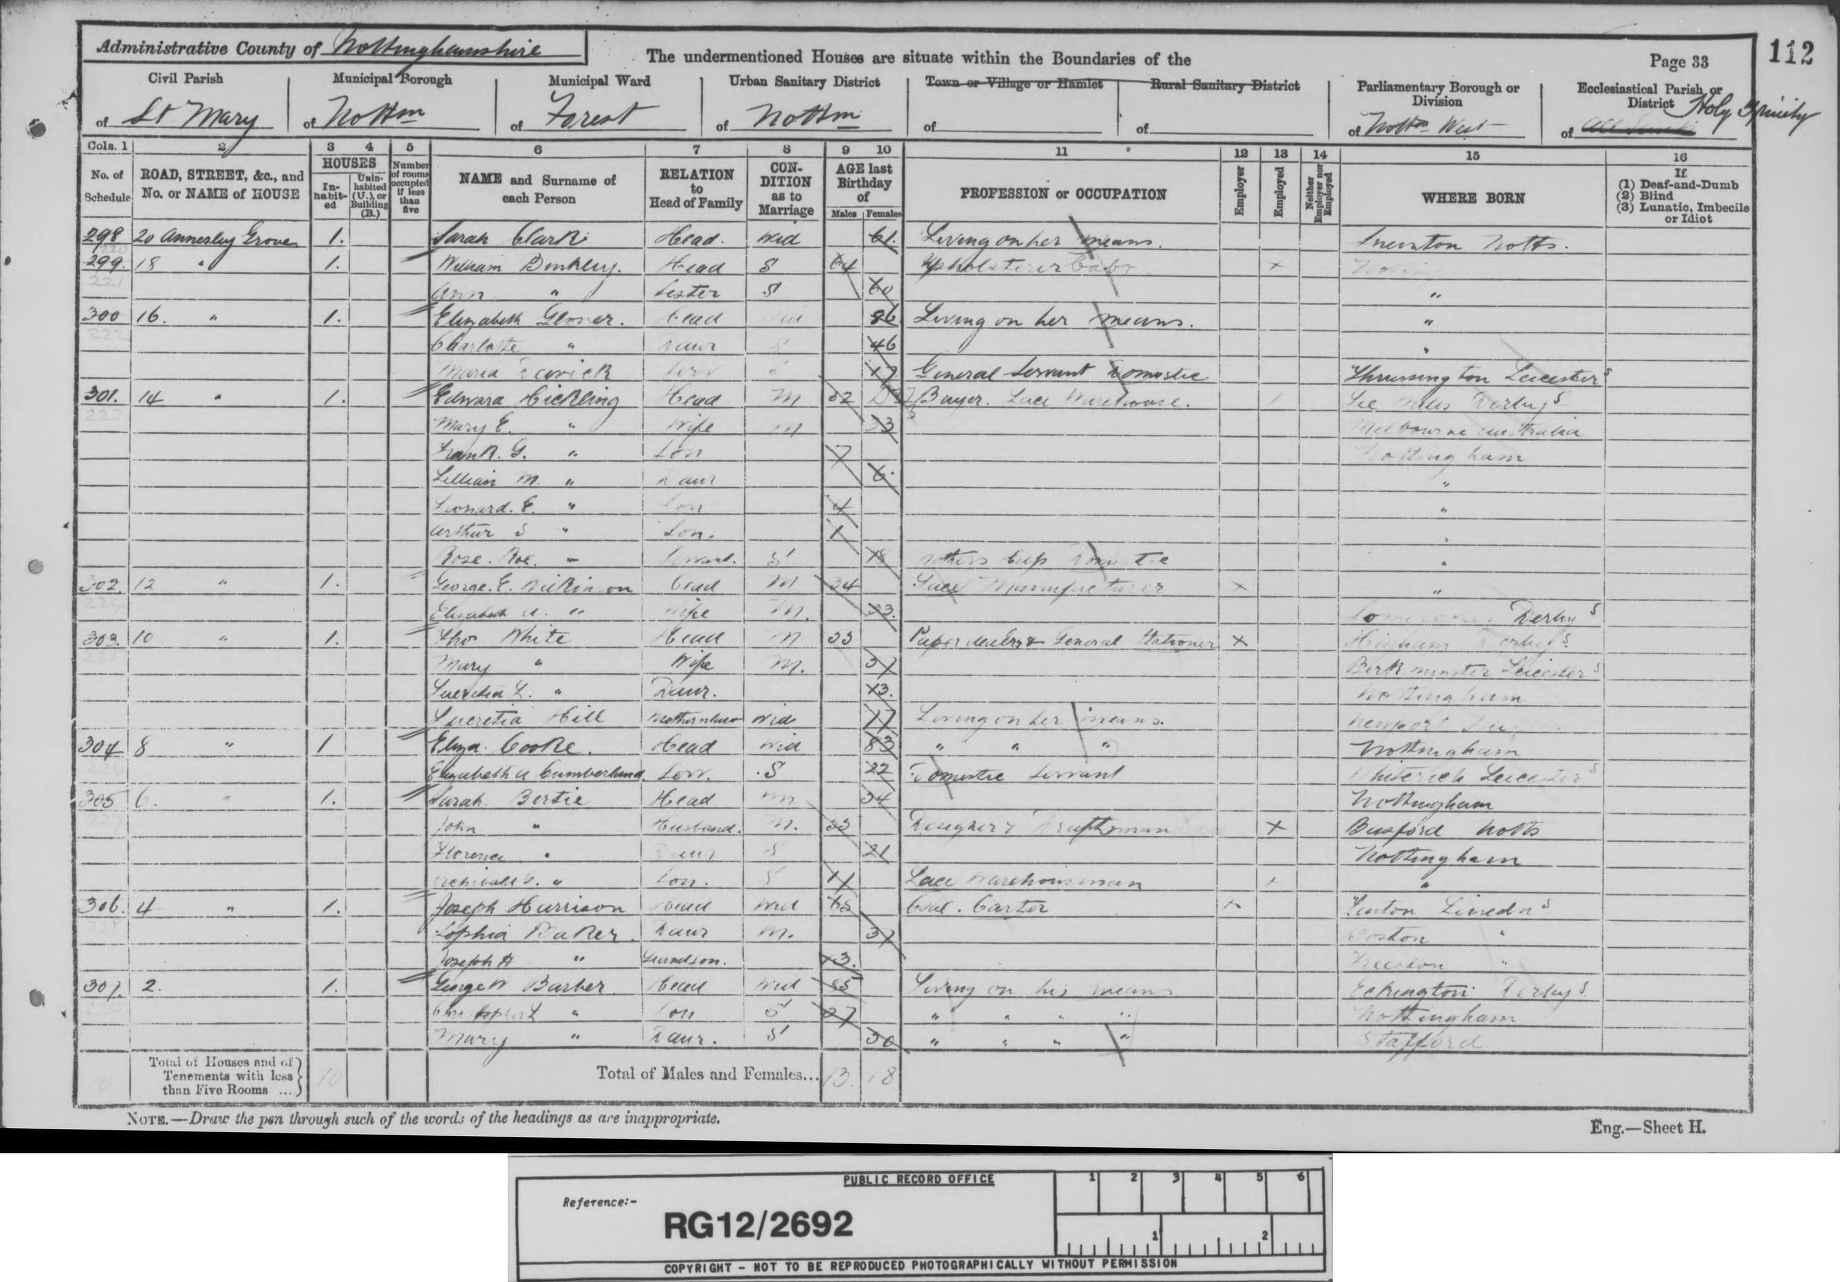 Administrative County of Nottinghamshire
The undermentioned Houses are situate within the Boundaries of the
Page 33
112
Civil Parish of St Mary
Municipal Borough of Nottm
Municipal Ward of Forest
Urban Sanitary District of Nottm
Town or Village or Hamlet of
Rural Sanitary District of
Parliamentary Borough or Division of Nottm West
Ecclesiastical Parish or District of Holy Trinity
Cols. 1 2 3 4 5 6 7 8 9 10 11 12 13 14 15 16
No. of Schedule
ROAD, STREET, &c., and No. or NAME of HOUSE
HOUSES
Inhabited
Uninhabited (U.), or Building (B.)
Number of rooms occupied if less than five
NAME and Surname of each Person
RELATION to Head of Family
CONDITION as to Marriage
AGE last Birthday of
Males Females
PROFESSION or OCCUPATION
Employer
Employed
Neither Employer nor Employed
WHERE BORN
If
(1) Deaf-and-Dumb
(2) Blind
(3) Lunatic, Imbecile or Idiot
298 20 Annesley Grove 1. Sarah Clark Head. Wid 61. Living on her means. Sneinton Notts.
299. 18 " 1. William Head S 64 Upholsterer x
Ann " Sister S 60 "
300 16. " 1. Elizabeth Glover. Head 86 Living on her means. "
Charlotte " Daur 46 "
Maria 17 General Servant Domestic Thrussington Leicesters
301. 14 " 1. Edward Hickling Head M 32 Buyer. Lace Warehouse.
Mary E. " Wife M 33 Melbourne Australia
Frank. G. " Son 7 Nottingham
Lillian M. " Daur 6. "
Leonard. E. " Son 4 "
Arthur S " Son. 1 "
Rose. S 18 Mothers Help Domestic "
302. 12 " 1. George. E. Wilkinson Head M 34 Lace Manufacturer x "
Elizabeth A. " Wife M. 33. Derbys
303. 10 " 1. Thos White Head M 33 Paper dealer & General Stationer x
Mary " Wife M. 37 Leicesters
Lucretia L. " Daur. 13. Nottingham
Lucretia Hill Mother in law Wid 77 Living on her means.
304 8 " 1 Eliza. Cooke. Head Wid 83 " " " Nottingham
Elizabeth A Cumberland. Serv. S 22 Domestic Servant Leicesters
305 6. " 1. Sarah Bertie Head M 54 Nottingham
John " Husband. M. 53 Designer & Draughtsman x Basford Notts
Florence " Daur S 21 Nottingham
Son. S Lace Warehouseman "
306. 4 " 1. Joseph Harrison Head Wid 68 Coal. Carter x Lincolns
Sophia Baker. Daur M. 37 Boston "
Joseph H " Grandson. 13. "
307. 2. 1. George W Barber Head Wid Living on his means Eckington Derbys
" Son S " " " " Nottingham
Mary " Daur. S 30 " " " " Stafford
Total of Houses and of Tenements with less than Five Rooms ... 10
Total of Males and Females... 13. 18
NOTE.—Draw the pen through such of the words of the headings as are inappropriate.
Eng.—Sheet H.
PUBLIC RECORD OFFICE
Reference:-
RG12/2692
1 2 3 4 5 6
1 2
COPYRIGHT - NOT TO BE REPRODUCED PHOTOGRAPHICALLY WITHOUT PERMISSION